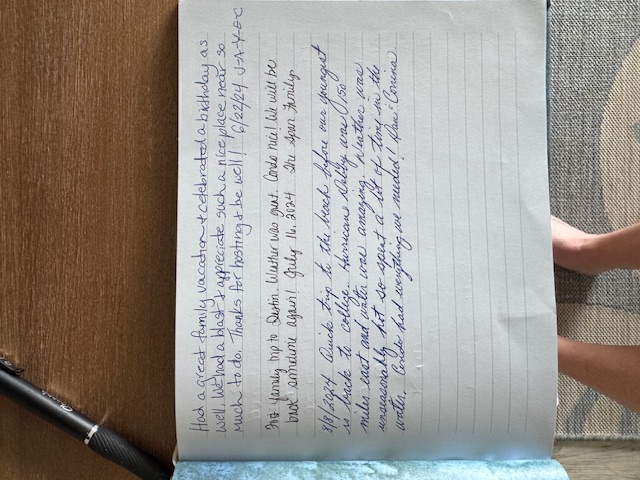 Had a great family vacation & celebrated a birthday as
well. We had a blast & appreciate such a nice place near so
much to do. Thanks for hosting & be well! 6/22/24 J-A-Y-E-C
First family trip to Destin. Weather was great. Condo nice! We will be
back sometime again! July 16, 2024 The Family
8/8/2024 Quick trip to the beach before our youngest
is back to college. Hurricane Debby was 150
miles east and water was amazing. Weather was
unseasonably hot so spent a lot of time in the
water. Condo had everything we needed! Dan & Corrina